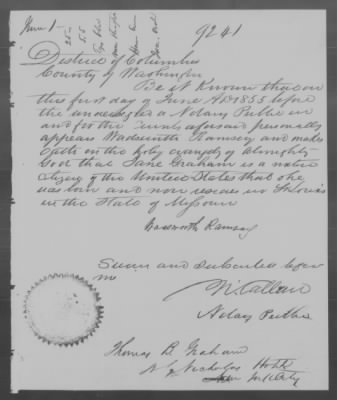 June 1 -
9241
District of Columbia
County of Washington
Be it Known that on
this first day of June AD 1855 before
the undersigned a Notary Public in
and for the County aforesaid personally
appears Wadsworth Ramsay and makes
Oath on the holy evangely of Almighty
God that Jane Graham is a native
Citizen of the United States that she
was born and now resides in St Louis
in the State of Missouri
Wadsworth Ramsay
Sworn and Subscribed before
me
N Callan
Notary Public
Thomas B. Graham
St Nicholas Hotel
N. Y. City